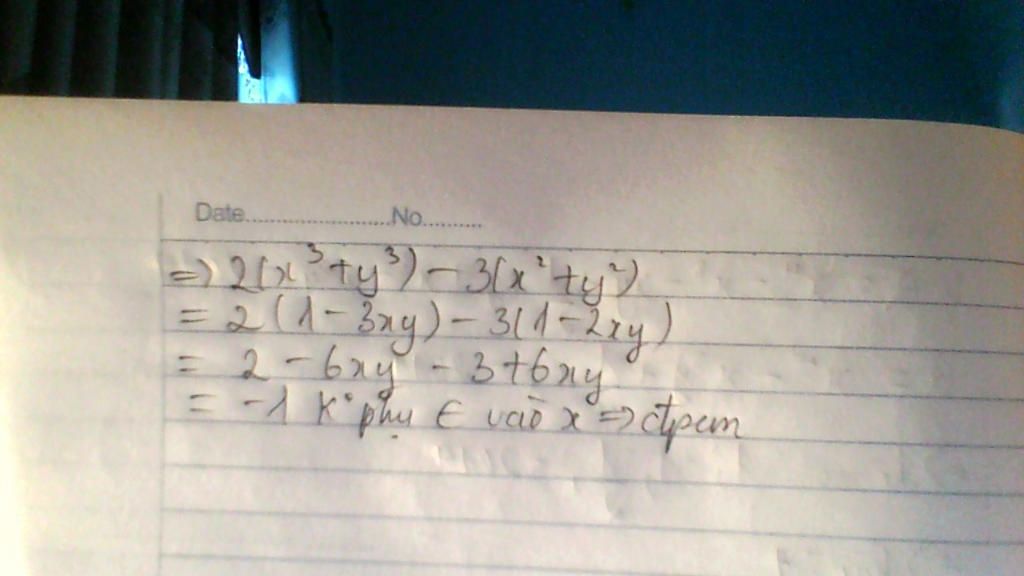 Date..........................No..........
=> 2(x³+y³) - 3(x²+y²)
= 2(1-3xy) - 3(1-2xy)
= 2 - 6xy - 3+6xy
= -1 K° phụ ∈ vào x => đpcm